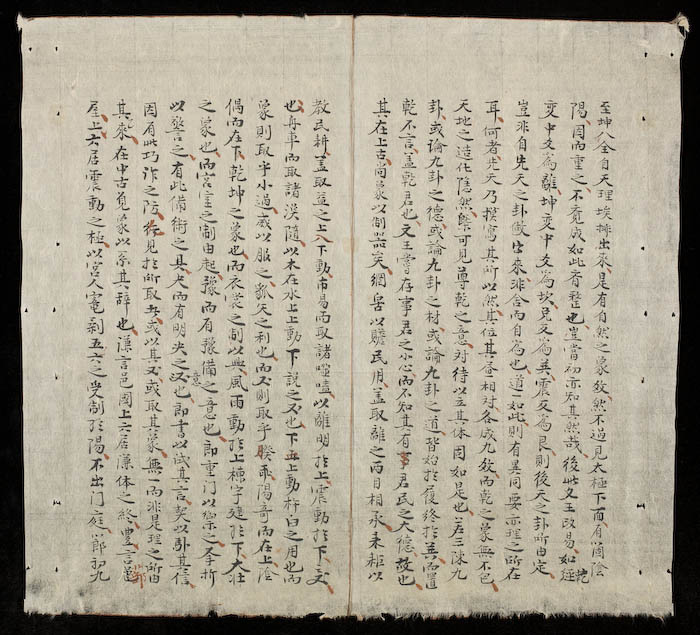 至坤八全自天理挨排出來是有自然之象数然不過見太極下面有箇陰
陽因而重之不竟成如此齊整也豈當初亦知其然哉後此文王改易如乾
変中爻為離坤変中爻為坎兌爻為巽震爻為艮則後天之卦所由定
豈非自先天之卦做出來非舍而自為也道一如此則有異同要亦理之所在
耳何者先天乃模寫其所以然其位其畫相對各成九数而乾之象無不包
天地之造化隐然槩可見尊乾之意对待以立其体固如是也若三陳九
卦或論九卦之德或論九卦之材或論九卦之道皆始於履終於巽而置
乾不言盖乾君也文王嘗存事君之小心而不知其有君民之大德故也
其在上古尚象以制器矣網罟以贍民用盖取離之兩目相承耒耜以
教民耕盖取益之上入下動市易而取諸噬嗑以離明於上震動於下
也舟車而取諸渙隨以木在水上上動下說之也下止上動杵臼之用也而
象則取乎小過威以服之弧矢之利也而則取乎睽乖陽奇而在上陰
偶而在下乾坤之象也而衣裳之制以興風雨動於上棟宇建於下大壯
之象也而宮室之制由起豫而有豫備之意也即重門以禦之
以言之有此備術之具夬而有明决之也即書以試其言契以別其信
因有此巧詐之防於所取或以其或取其象無一而非是理之所由
其來在中古覓象以系其辞也謙言邑國上六居謙体之終豊言
屋上六居震動之極以宮人剥五六之受制於陽不出门庭節初九